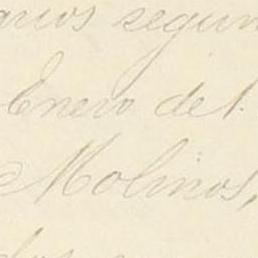 arios segun
Enero del
Molinos,